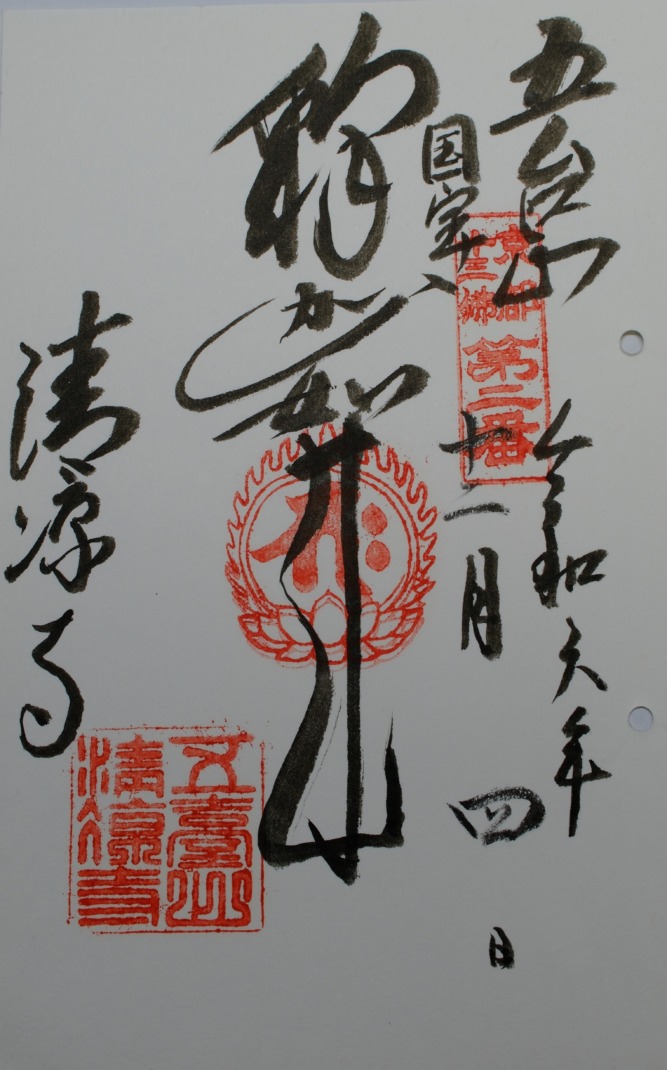 五台山
令和六年
国宝
十二月四日
京都
十三佛
第二番
釈迦如来
清凉寺
五臺山
清凉寺